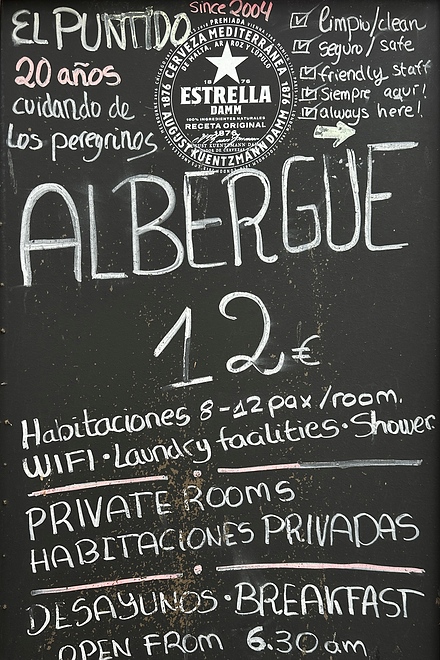 EL PUNTIDO
since 2004
20 años
cuidando de
los peregrinos
PREMIADA
CERVEZA MEDITERRÁNEA
DE MALTA, ARROZ Y LÚPULO
1876
1876
18 76
ESTRELLA
DAMM
100% INGREDIENTES NATURALES
RECETA ORIGINAL
1876
AUGUST KUENTZMANN DAMM
☑ limpio/clean
☑ seguro/safe
☑ friendly staff
☑ Siempre aquí!
☑ always here!
ALBERGUE
12€
Habitaciones 8-12 pax/room.
WIFI·Laundry facilities·Shower
PRIVATE ROOMS
HABITACIONES PRIVADAS
DESAYUNOS·BREAKFAST
OPEN FROM 6.30 am